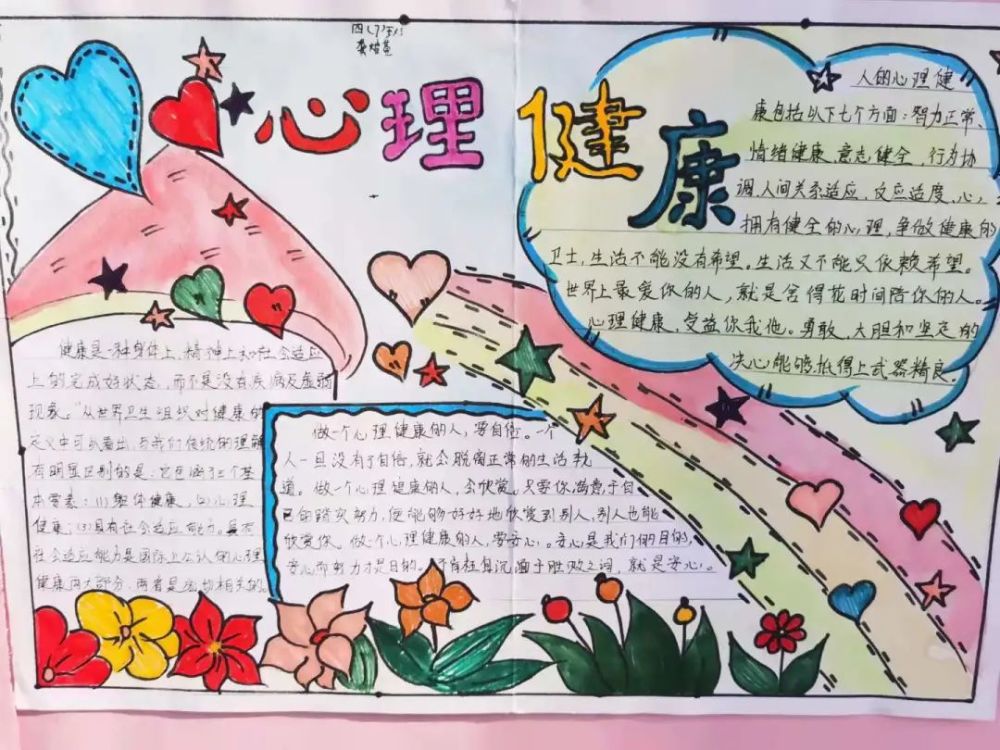 四(7)
心理健康
人的心理健
康包括以下七个方面：智力正常、
情绪健康、意志健全、行为协
调、人间关系适应、反应适度、心
拥有健全的心理，争做健康的
卫士，生活不能没有希望。生活又不能只依赖希望。
世界上最爱你的人，就是舍得花时间陪你的人。
心理健康，受益你我他。勇敢、大胆和坚定的
决心能够抵得上武器精良。
健康是一种身体上、精神上和社会适应
上的完成好状态，而不是没有疾病及虚弱
现象。"从世界卫生组织对健康的
定义中可以看出，与我们传统的理解
有明显区别的是，它包涵了三个基
本要素：(1)躯体健康，(2)心理
健康；(3)具有社会适应能力。具有
社会适应能力是国际上公认的心理
健康两大部分，两者是密切相关的。
做一个心理健康的人，要自信。一个
人一旦没有了自信，就会脱离正常的生活轨
道。做一个心理健康的人，会欣赏。只要你满意于自
己的踏实努力，便能够好好地欣赏到别人，别人也能
欣赏你。做一个心理健康的人，要安心。安心是我们的目的，
安心而努力才是目的。不有枉自沉湎于胜败之词，就是安心。